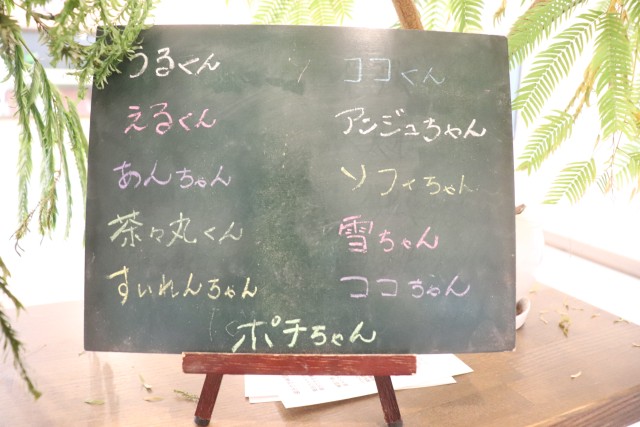 うるくん
えるくん
あんちゃん
茶々丸くん
すいれんちゃん
ココくん
アンジュちゃん
ソフィちゃん
雪ちゃん
ココちゃん
ポチちゃん